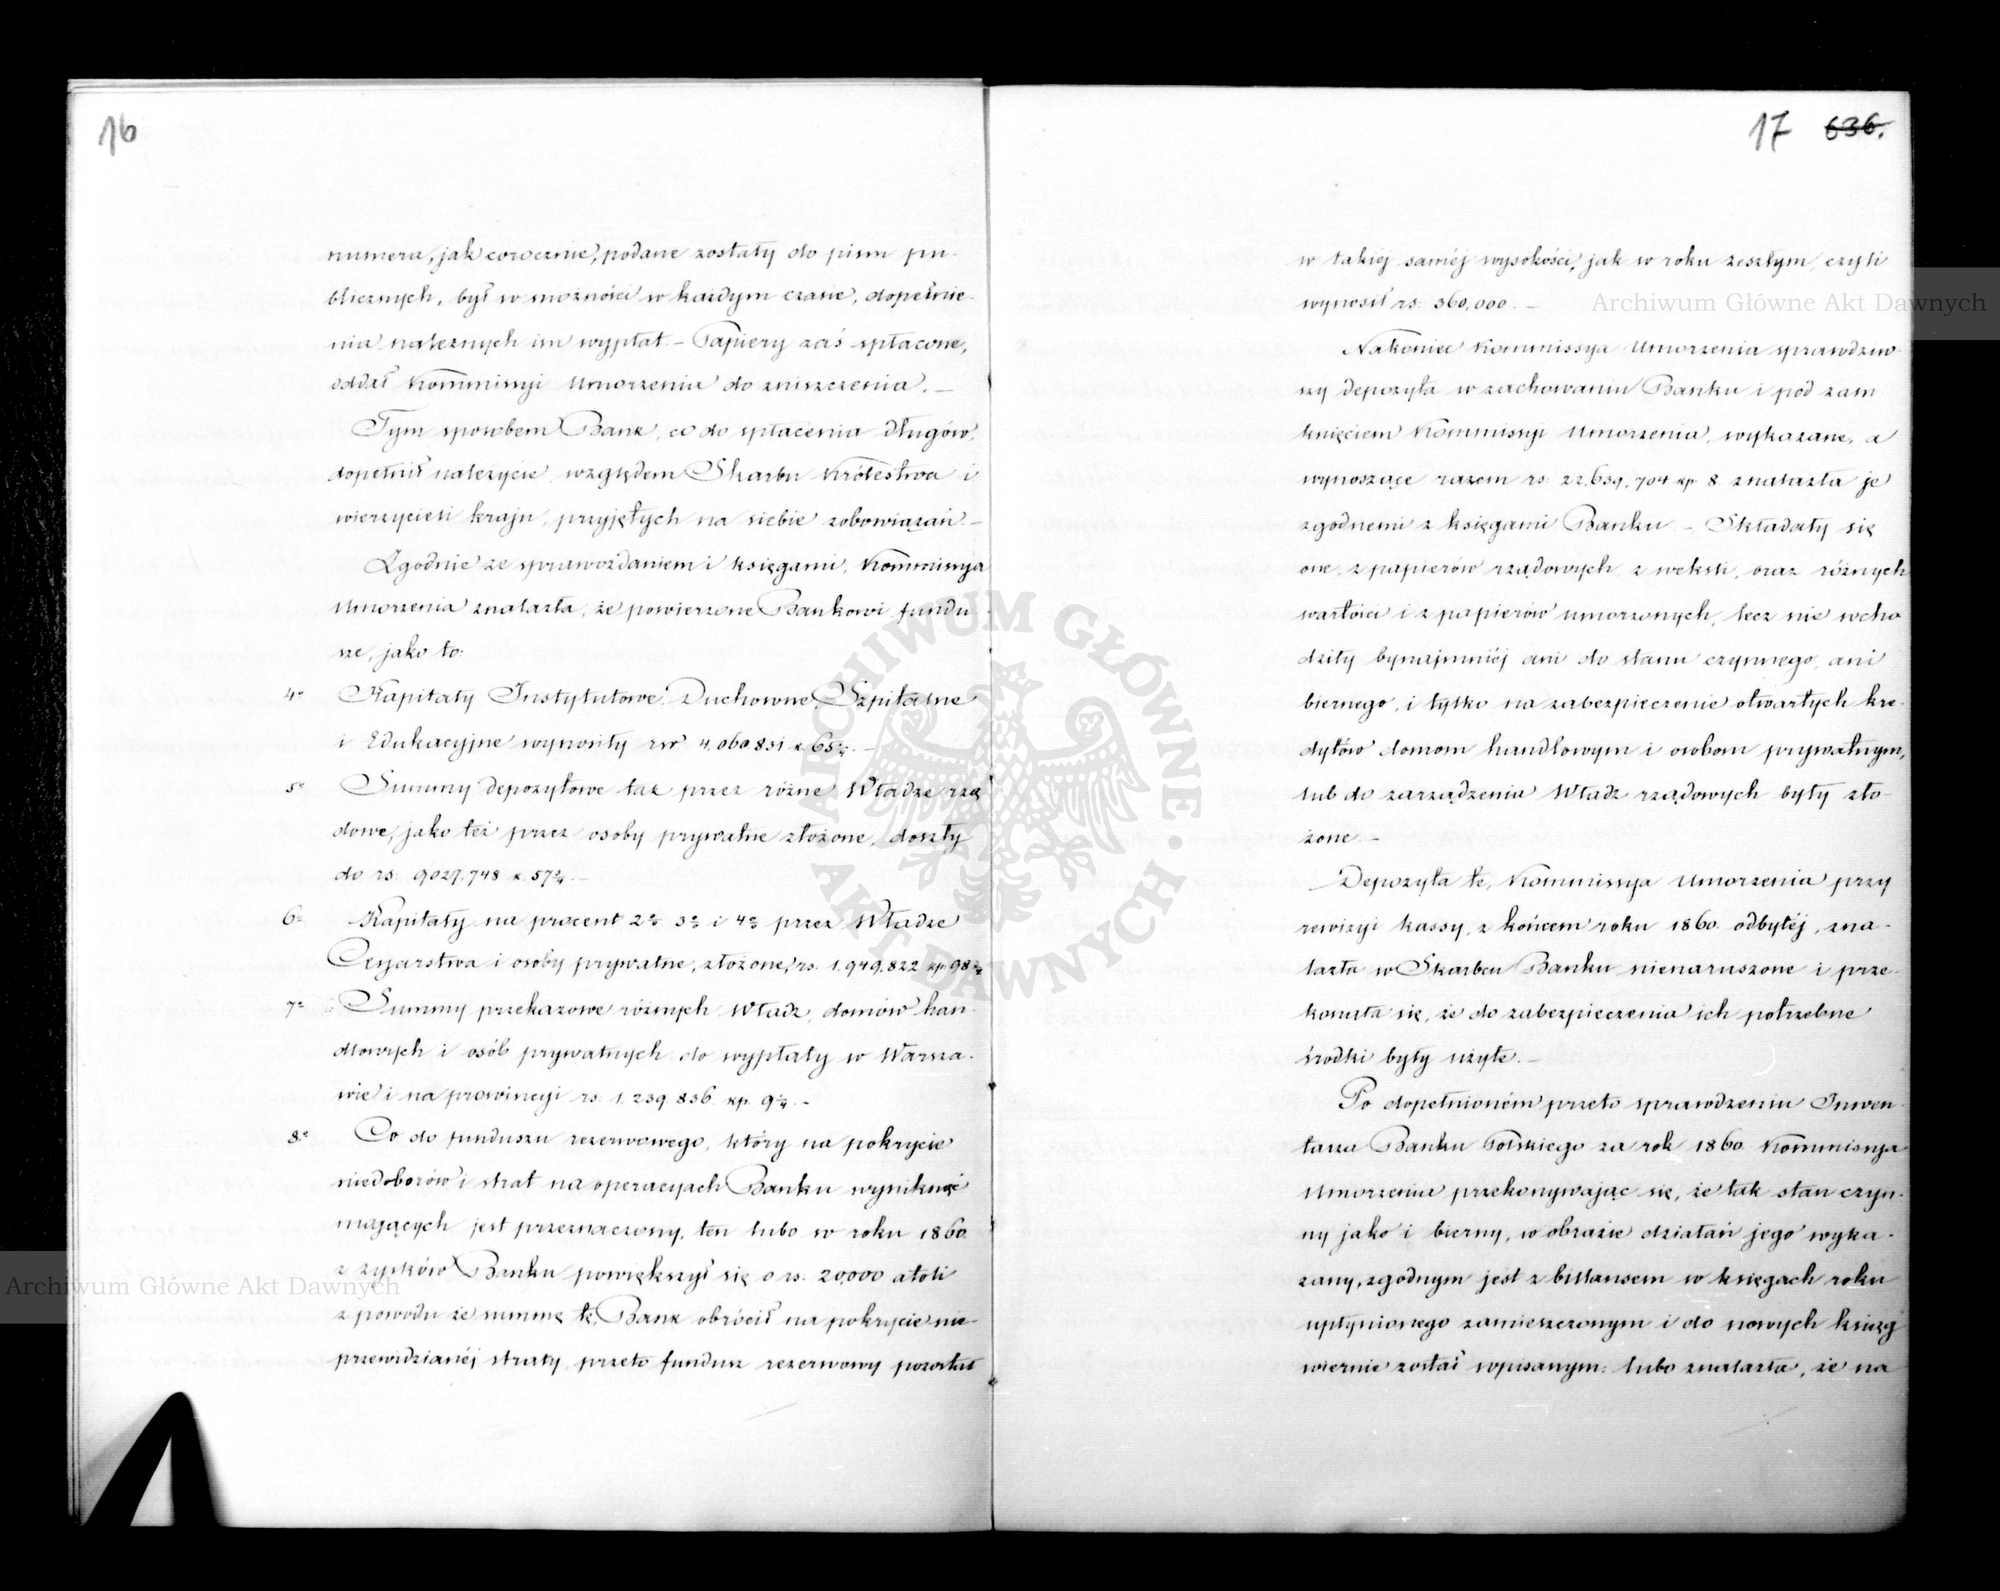 16
numera, jak corocznie, podane zostały do pism pu-
blicznych, był w możności w każdym czasie, dopełnie-
nia należnych im wypłat. – Papiery zaś spłacone,
oddał Kommissyi Umorzenia do zniszczenia. –
Tym sposobem Bank, co do spłacenia długów,
dopełnił należycie, względem Skarbu Królestwa i
wierzycieli kraju, przyjętych na siebie zobowiązań –
Zgodnie ze sprawozdaniem i księgami, Kommissya
Umorzenia znalazła, że powierzone Bankowi fundu-
sze, jako to:
4° Kapitały Instytutowe, Duchowne, Szpitalne
i Edukacyjne wynosiły rsr 4,060,831 k 65
5° Summy depozytowe tak przez różne Władze rzą
dowe, jako też przez osoby prywatne złożone, doszły
do rs. 9027,748 k. 57 –
6° Kapitały na procent 2 3 i 4 przez Władze
Cesarstwa i osoby prywatne, złożone, rs. 1,949,822 kp 98
7° Summy przekazowe różnych Władz, domów han-
dlowych i osób prywatnych do wypłaty w Warsza-
wie i na prowincyi rs. 1,239,836 kp. 9 –
8° Co do funduszu rezerwowego, który na pokrycie
niedoborów i strat na operacyach Banku wyniknąć
mających jest przeznaczony, ten lubo w roku 1860
z zysków Banku powiększył się o rs. 20,000 atoli
z powodu że summę tę, Bank obrócił na pokrycie nie-
przewidzianéj straty, przeto fundusz rezerwowy pozostał
17 636.
w takiéj saméj wysokości, jak w roku zeszłym, czyli
wynosił rs. 360,000. –
Nakoniec Kommissya Umorzenia sprawdziw-
szy depozyta w zachowaniu Banku i pod zam
knięciem Kommissyi Umorzenia, wykazane, a
wynoszące razem rs. 22,639,704 kp 8 znalazła je
zgodnemi z księgami Banku. – Składały się
one, z papierów rządowych, z weksli, oraz różnych
wartości i z papierów umorzonych, lecz nie wcho
dziły bynajmniéj ani do stanu czynnego, ani
biernego, i tylko na zabezpieczenie otwartych kre-
dytów domom handlowym i osobom prywatnym,
lub do zarządzenia Władz rządowych były zło-
żone. –
Depozyta te, Kommissya Umorzenia przy
rewizyi kassy, z końcem roku 1860. odbytéj, zna-
lazła w Skarbcu Banku nienaruszone i prze-
konała się, że do zabezpieczenia ich potrzebne
środki były użyte. –
Po dopełnioném przeto sprawdzeniu Inwen-
tarza Banku Polskiego za rok 1860 Kommissya
Umorzenia przekonywając się, że tak stan czyn-
ny jako i bierny, w obrazie działań jego wyka-
zany, zgodnym jest z billansem w księgach roku
upłynionego zamieszczonym i do nowych ksiąg
wiernie został wpisanym; lubo znalazła, że na
Archiwum Główne Akt Dawnych
Archiwum Główne Akt Dawnych
ARCHIWUM GŁÓWNE AKT DAWNYCH